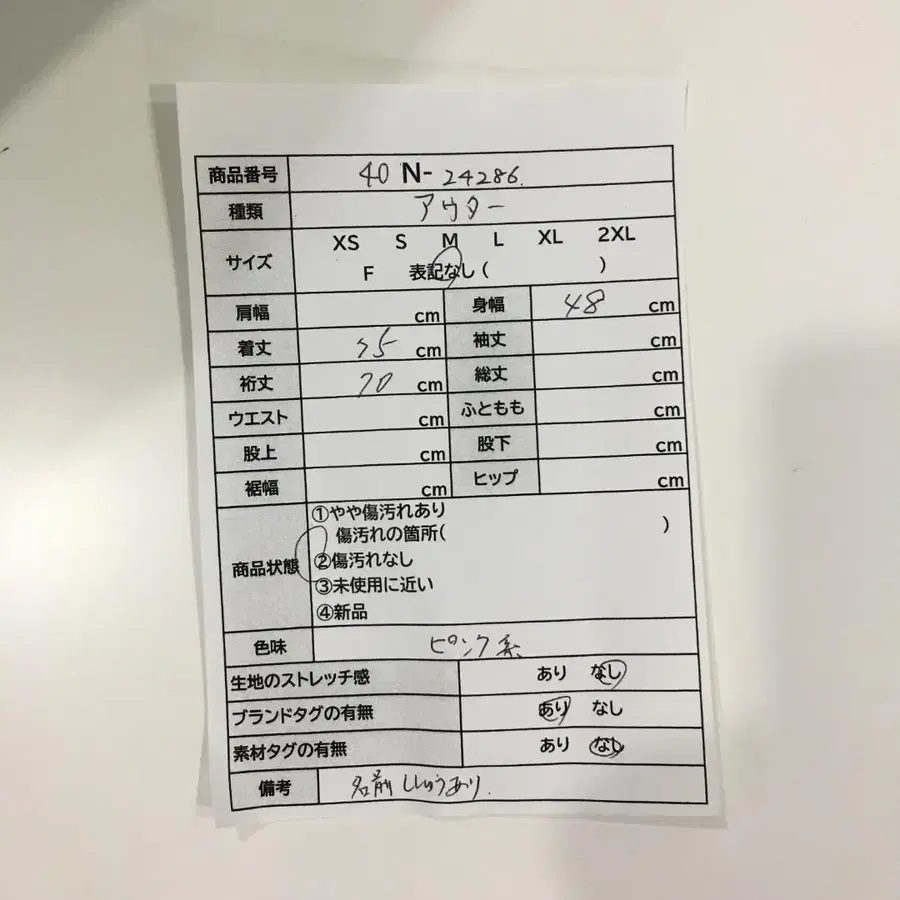 商品番号 40 N- 24286.
種類 アウター
サイズ XS S M L XL 2XL
F 表記なし ( )
肩幅 cm 身幅 48 cm
着丈 cm 袖丈 cm
裄丈 70 cm 総丈 cm
ウエスト cm ふともも cm
股上 cm 股下 cm
裾幅 cm ヒップ cm
商品状態 ①やや傷汚れあり
傷汚れの箇所( )
②傷汚れなし
③未使用に近い
④新品
色味 ピンク系
生地のストレッチ感 あり なし
ブランドタグの有無 あり なし
素材タグの有無 あり なし
備考 名前ししゅうあり.